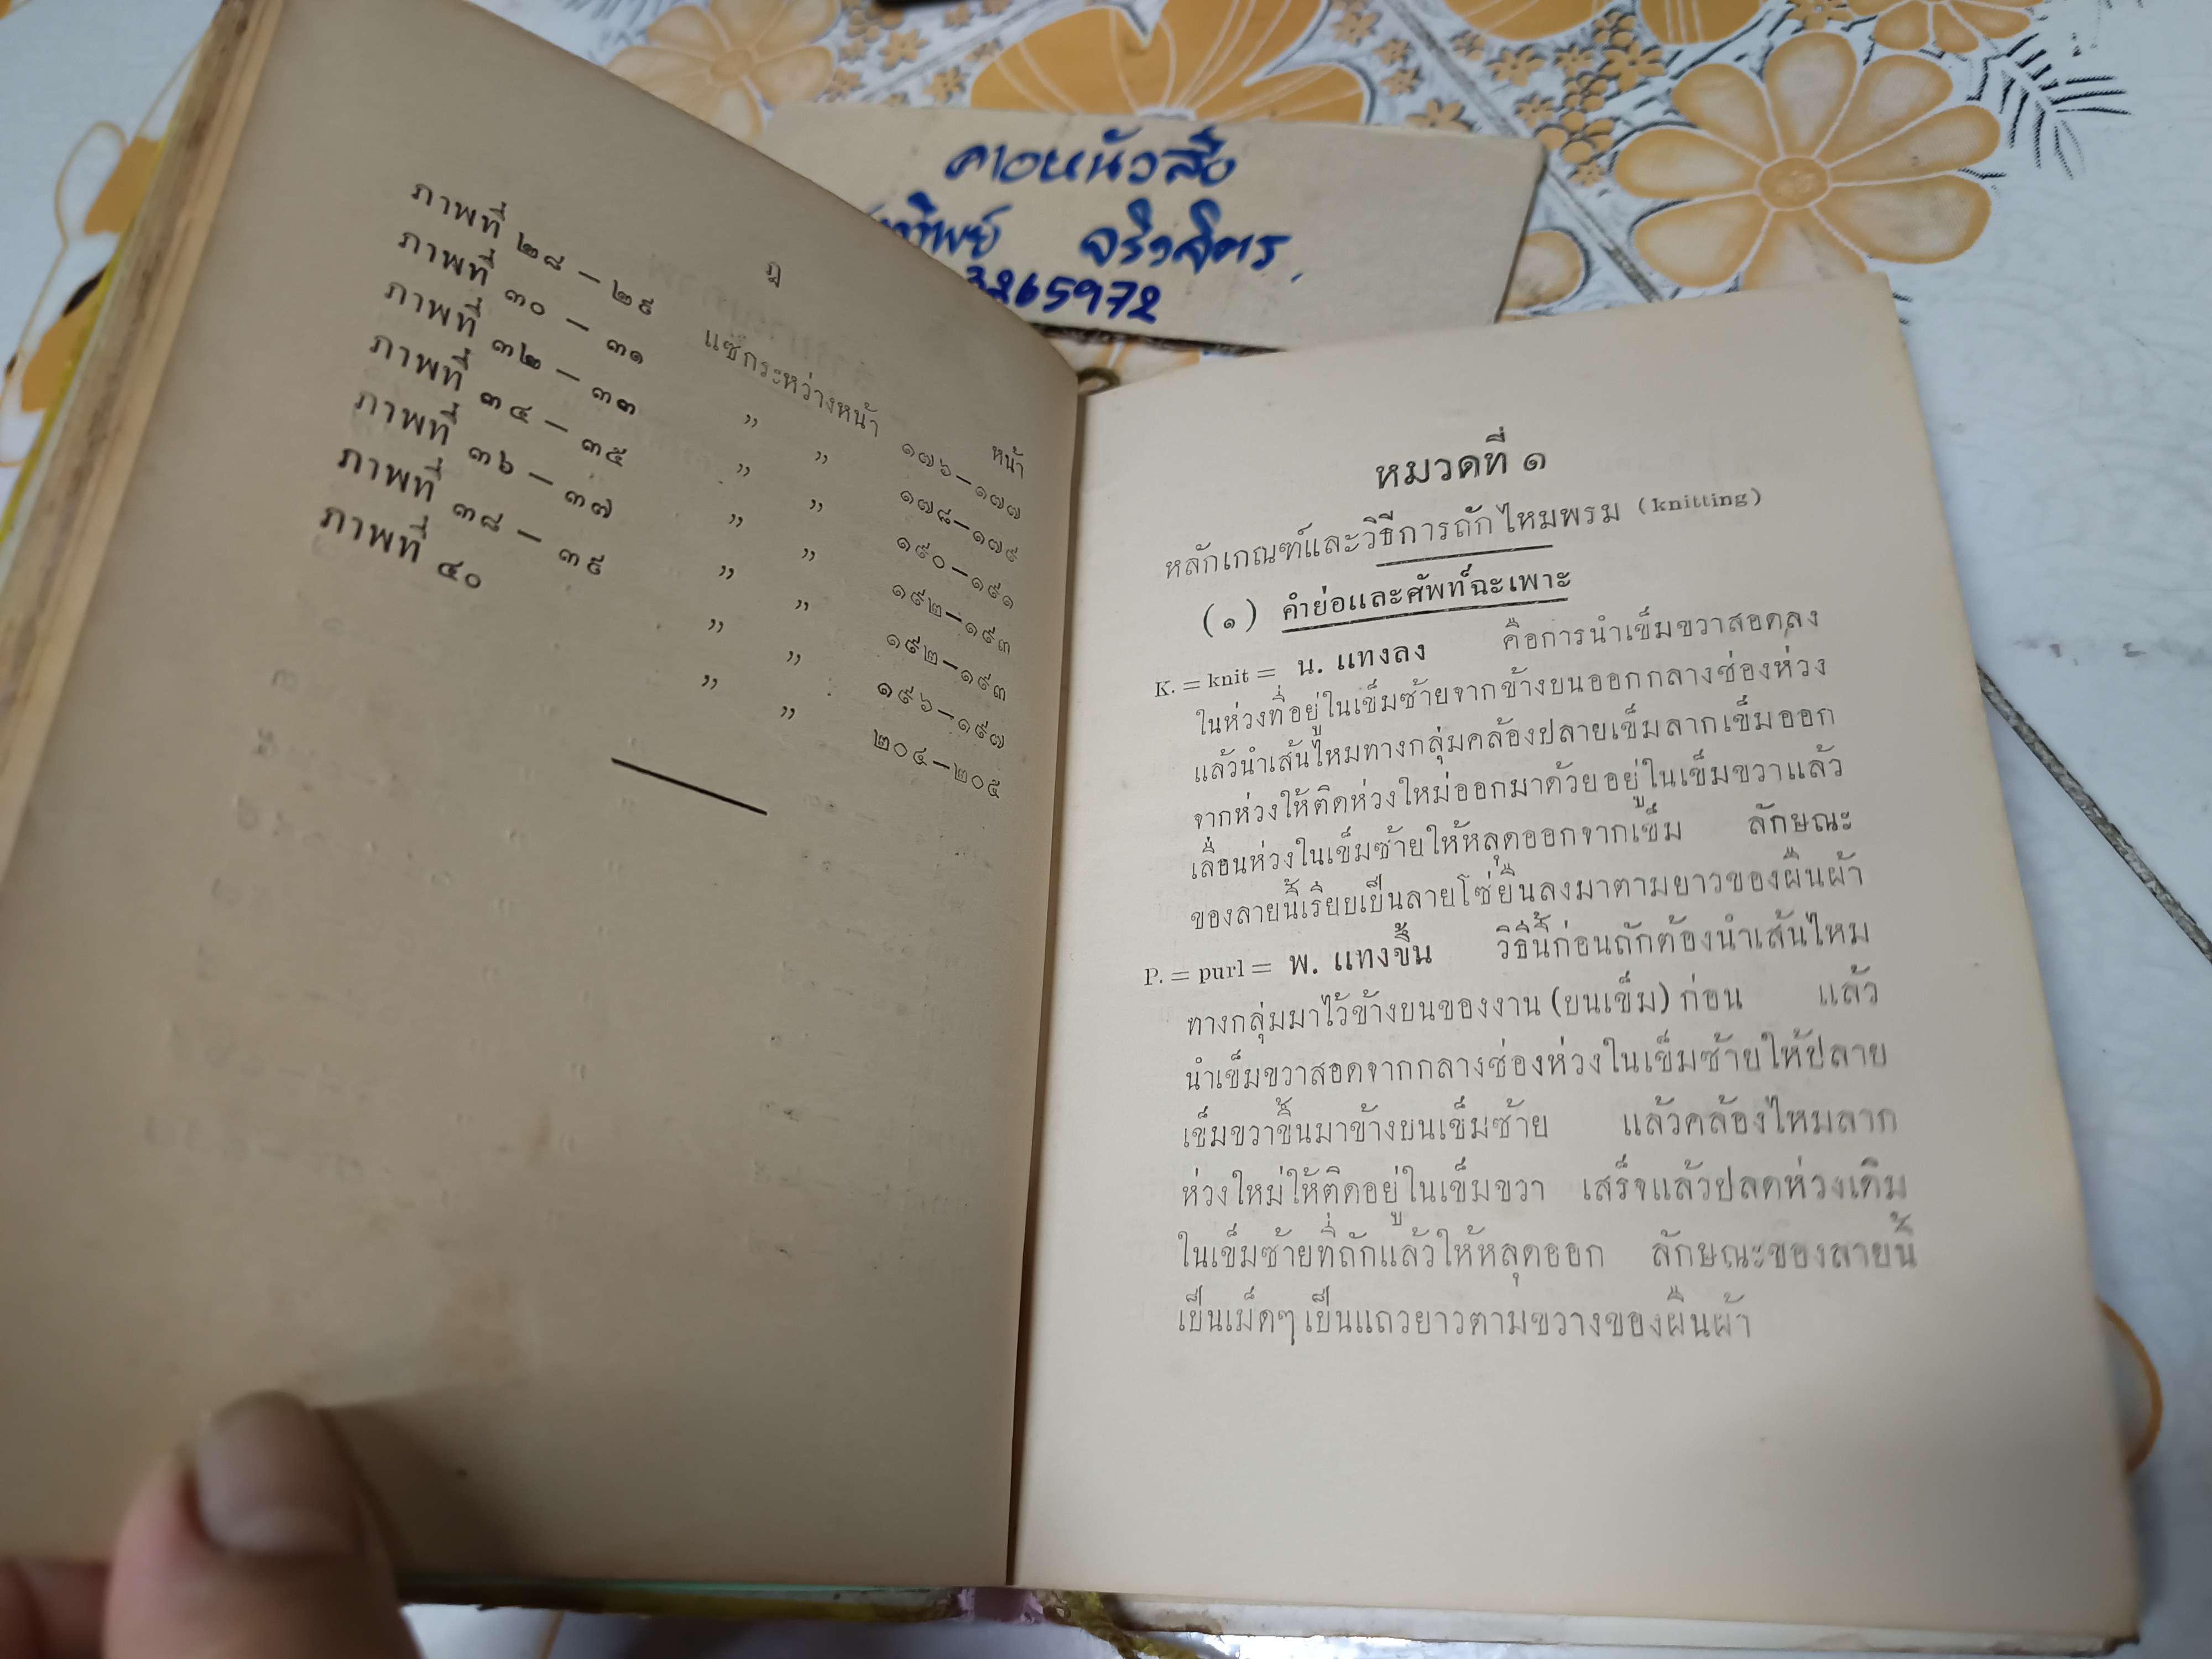 คาวหนังสือ
ทิพย์ จริงจิตร
3265972
ฎ
หน้า
ภาพที่ ๒๘ — ๒๙ แซกระหว่างหน้า ๑๗๖—๑๗๗
ภาพที่ ๓๐ — ๓๑ ,, ,, ๑๗๘—๑๗๙
ภาพที่ ๓๒ — ๓๓ ,, ,, ๑๙๐—๑๙๑
ภาพที่ ๓๔ — ๓๕ ,, ,, ๑๙๒—๑๙๓
ภาพที่ ๓๖ — ๓๗ ,, ,, ๑๙๒—๑๙๓
ภาพที่ ๓๘ — ๓๙ ,, ,, ๑๙๖—๑๙๗
ภาพที่ ๔๐ ,, ,, ๒๐๔—๒๐๕
หมวดที่ ๑
หลักเกณฑ์และวิธีการถักไหมพรม (knitting)
(๑) คำย่อและศัพท์ฉะเพาะ
K. = knit = น. แทงลง คือการนำเข็มขวาสอดลง
ในห่วงที่อยู่ในเข็มซ้ายจากข้างบนออกกลางช่องห่วง
แล้วนำเส้นไหมทางกลุ่มคล้องปลายเข็มลากเข็มออก
จากห่วงให้ติดห่วงใหม่ออกมาด้วยอยู่ในเข็มขวาแล้ว
เลื่อนห่วงในเข็มซ้ายให้หลุดออกจากเข็ม ลักษณะ
ของลายนี้เรียบเป็นลายโซ่ยืนลงมาตามยาวของผืนผ้า
P. = purl = พ. แทงขึ้น วิธีนี้ก่อนถักต้องนำเส้นไหม
ทางกลุ่มมาไว้ข้างบนของงาน (บนเข็ม) ก่อน แล้ว
นำเข็มขวาสอดจากกลางช่องห่วงในเข็มซ้ายให้ปลาย
เข็มขวาขึ้นมาข้างบนเข็มซ้าย แล้วคล้องไหมลาก
ห่วงใหม่ให้ติดอยู่ในเข็มขวา เสร็จแล้วปลดห่วงเดิม
ในเข็มซ้ายที่ถักแล้วให้หลุดออก ลักษณะของลายนี้
เป็นเม็ดๆ เป็นแถวยาวตามขวางของผืนผ้า